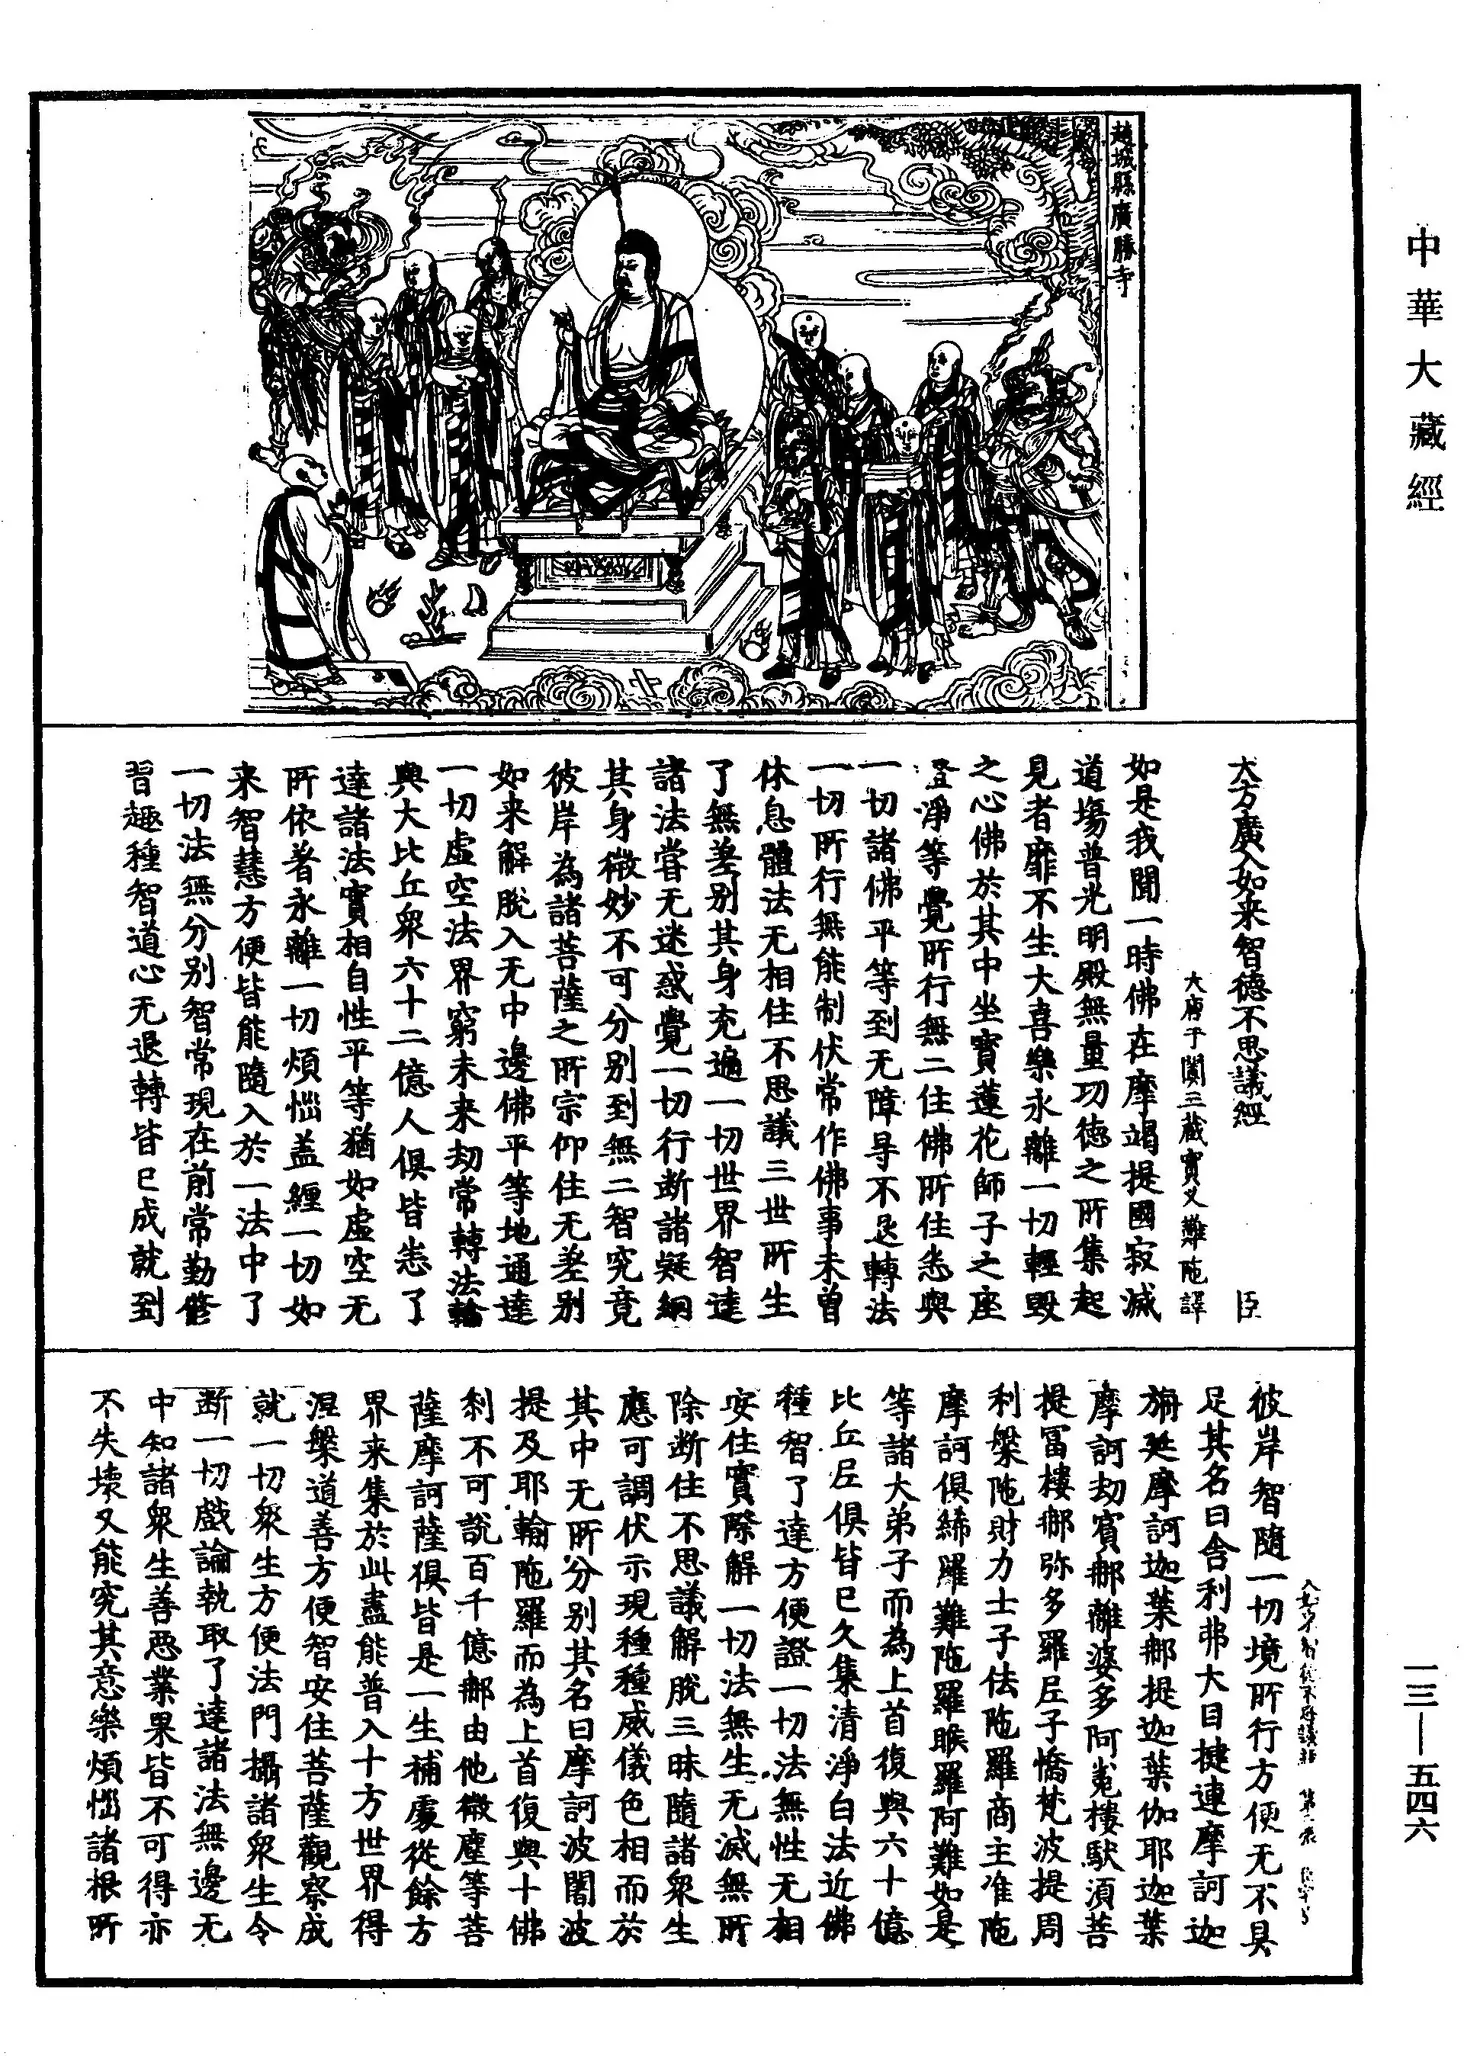 中華大藏經
趙城縣廣勝寺
大方廣入如来智德不思議經 臣
大唐于闐三藏實叉難陁譯
如是我聞一時佛在摩竭提國寂滅
道場普光明殿無量功德之所集起
見者靡不生大喜樂永離一切輕毀
之心佛於其中坐寳蓮花師子之座
澄淨等覺所行無二住佛所住悉與
一切諸佛平等到无障㝵不退轉法
一切所行無能制伏常作佛事未曾
休息體法无相住不思議三世所生
了無差别其身充遍一切世界智達
諸法嘗无迷惑覺一切行断諸疑網
其身微妙不可分别到無二智究竟
彼岸為諸菩薩之所宗仰住无差别
如来解脫入无中邊佛平等地通達
一切虛空法界窮未来劫常轉法輪
與大比丘衆六十二億人俱皆悉了
達諸法實相自性平等猶如虛空无
所依著永離一切煩惱盖纏一切如
来智慧方便皆能隨入於一法中了
一切法無分别智常現在前常勤修
習趣種智道心无退轉皆已成就到
彼岸智隨一切境所行方便无不具
足其名曰舍利弗大目揵連摩訶迦
旃延摩訶迦葉那提迦葉伽耶迦葉
摩訶劫賓那離婆多阿㝹樓馱湏菩
提冨樓那弥多羅尼子憍梵波提周
利槃陁財力士子佉陁羅商主准陁
摩訶俱絺羅難陁羅睺羅阿難如是
等諸大弟子而為上首復與六十億
比丘尼俱皆已久集清淨白法近佛
種智了達方便證一切法無性无相
安住實際解一切法無生无滅無所
除断住不思議解脫三昧隨諸衆生
應可調伏示現種種威儀色相而於
其中无所分别其名曰摩訶波闍波
提及耶輸陁羅而為上首復與十佛
剎不可說百千億那由他微塵等菩
薩摩訶薩俱皆是一生補處從餘方
界来集於此盡能普入十方世界得
涅槃道善方便智安住菩薩觀察成
就一切衆生方便法門攝諸衆生令
断一切戲論執取了達諸法無邊无
中知諸衆生善惡業果皆不可得亦
不失壞又能究其意樂煩惱諸根所
一三—五四六